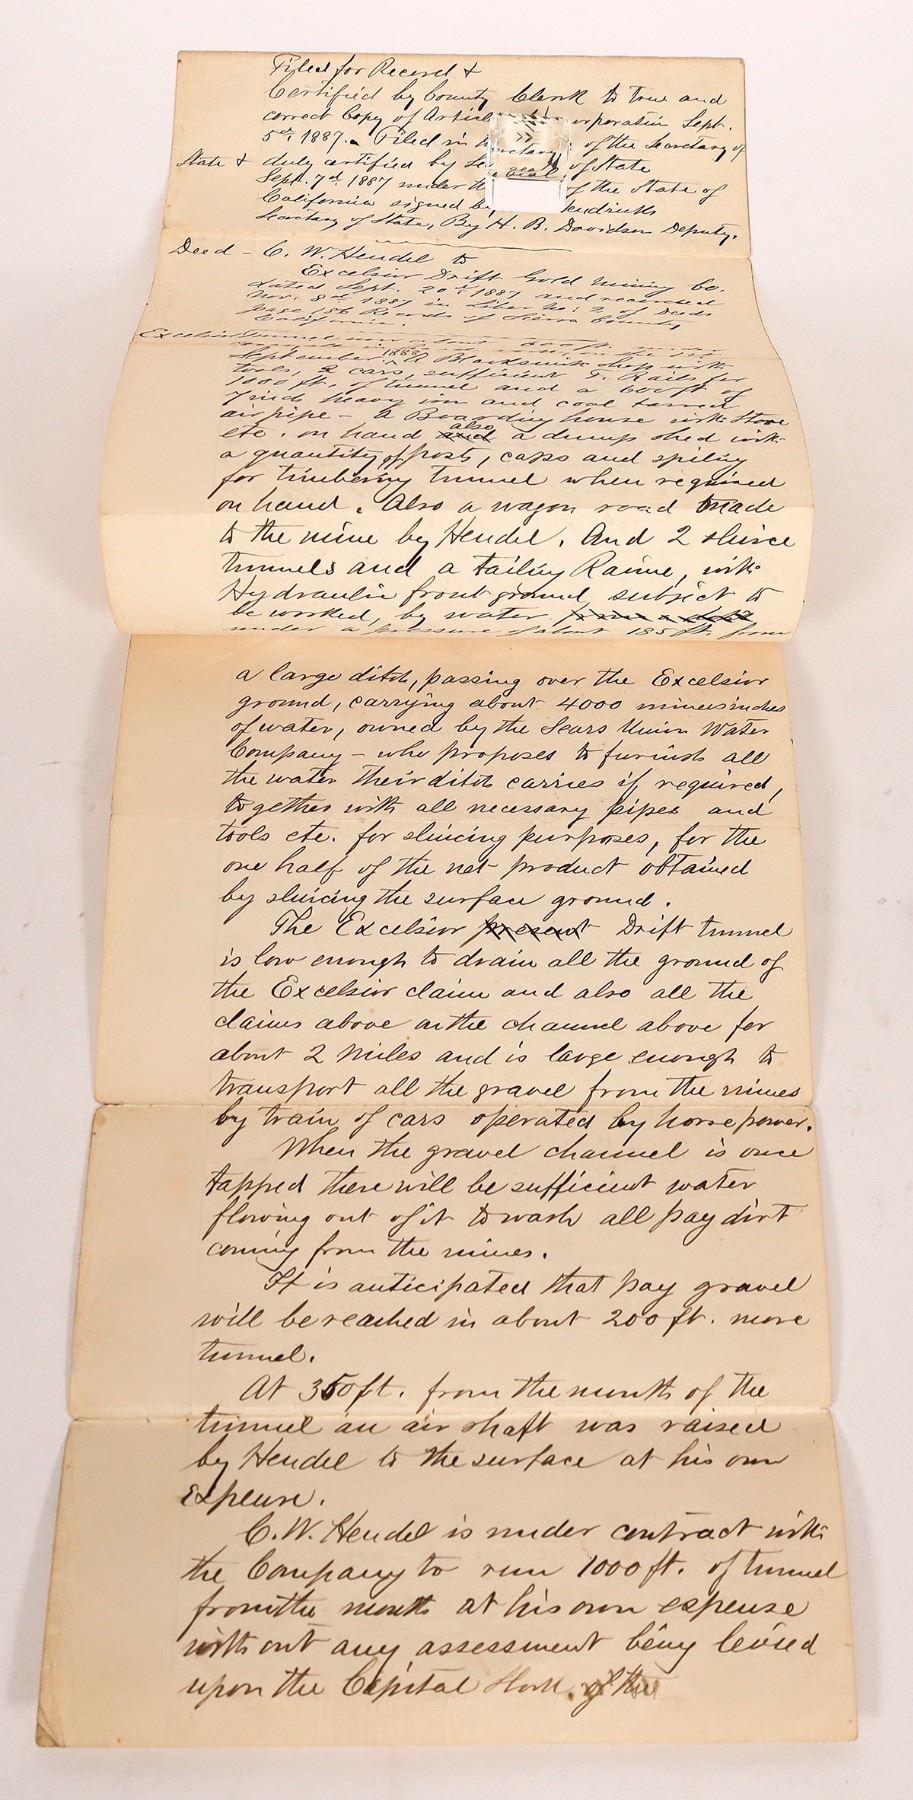 Filed for Record &
Certified by County Clerk to True and
correct Copy of Articl rporation Sept.
5th 1887. Filed in of the Secretary of
State & duly certified by Se of State
Sept. 7th 1887 under th of the State of
California signed by endricks
Secretary of State, By H. B. Davidson Deputy.
Deed - C. W. Hendel to
Excelsior Drift Gold Mining Co.
Dated Sept. 20th 1887 and recorded
Nov. 8th 1887 in Liber No. 2 of Deeds
page 186 Records of Sierra County
California.
Excelsior Tunnel
September 1888 A Blacksmith shop with
tools, 2 cars, sufficient T. Rails for
1000 ft. of tunnel and a 600 ft of
7 inch heavy iron and coal tarred
air pipe - a Boarding house with Stove
etc. on hand and also a dump shed with
a quantity of posts, caps and spiling
for timbering tunnel when required
on hand. Also a wagon road made
to the mine by Hendel. And 2 sluice
tunnels and a tailing Ravine, with
Hydraulic front ground, subject to
be worked, by water
under a pressure of about 185 ft. from
a large ditch, passing over the Excelsior
ground, carrying about 4000 miners inches
of water, owned by the Sears Union Water
Company - who proposes to furnish all
the water their ditch carries if required,
together with all necessary pipes and
tools etc. for sluicing purposes, for the
one half of the net product obtained
by sluicing the surface ground.
The Excelsior present Drift tunnel
is low enough to drain all the ground of
the Excelsior claim and also all the
claims above on the channel above for
about 2 miles and is large enough to
transport all the gravel from the mines
by train of cars operated by horse power.
When the gravel channel is once
tapped there will be sufficient water
flowing out of it to wash all pay dirt
coming from the mines.
It is anticipated that pay gravel
will be reached in about 200 ft. more
tunnel.
At 350 ft. from the mouth of the
tunnel an air shaft was raised
by Hendel to the surface at his own
expense.
C. W. Hendel is under contract with
the Company to run 1000 ft. of tunnel
from the mouth at his own expense
without any assessment being levied
upon the Capital Stock. of the